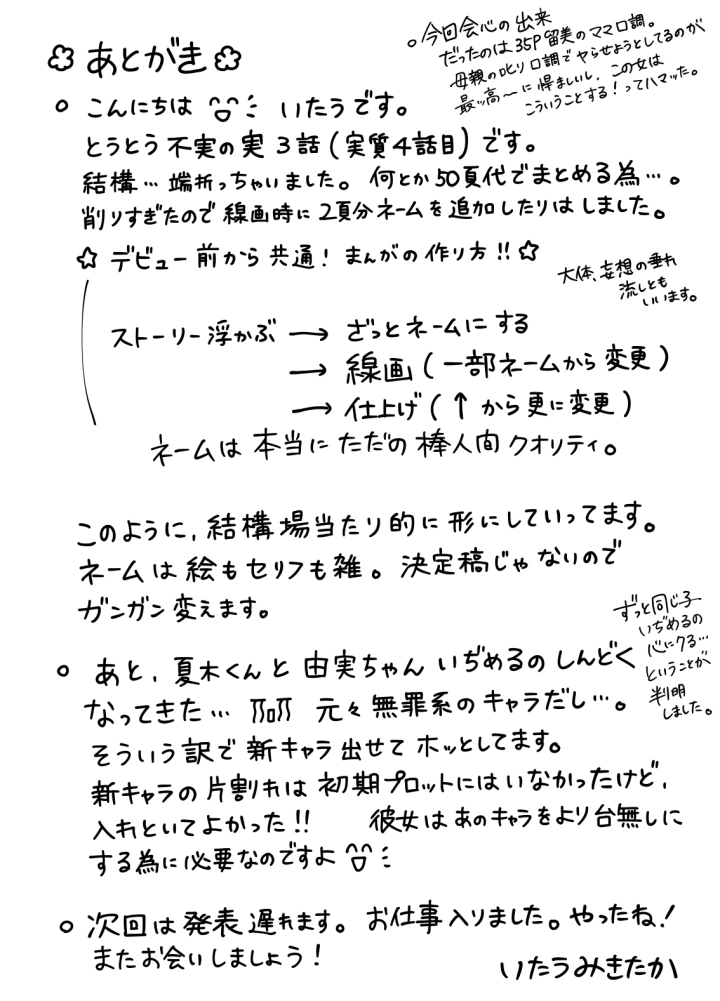 あとがき
○今回会心の出来
だったのは35P留美のママ口調。
母親の叱り口調でヤらせようとしてるのが
最ッ高〜に悍ましいし、この女は
こういうことする!ってハマッた。
○ こんにちは いたうです。
とうとう不実の実3話(実質4話目)です。
結構…端折っちゃいました。何とか50頁代でまとめる為…。
削りすぎたので線画時に2頁分ネームを追加したりはしました。
☆ デビュー前から共通!まんがの作り方!!☆
大体、妄想の垂れ
流しとも
いいます。
ストーリー浮かぶ → ざっとネームにする
→ 線画(一部ネームから変更)
→ 仕上げ(↑から更に変更)
ネームは本当にただの棒人間クオリティ。
このように、結構場当たり的に形にしていってます。
ネームは絵もセリフも雑。決定稿じゃないので
ガンガン変えます。
○ あと、夏木くんと由実ちゃんいぢめるのしんどく
なってきた… 元々無罪系のキャラだし…。
ずっと同じ子
いぢめるの
心にクる…
ということが
判明
しました。
そういう訳で新キャラ出せてホッとしてます。
新キャラの片割れは初期プロットにはいなかったけど、
入れといてよかった!! 彼女はあのキャラをより台無しに
する為に必要なのですよ
○ 次回は発表遅れます。お仕事入りました。やったね!
またお会いしましょう!
いたうみきたか